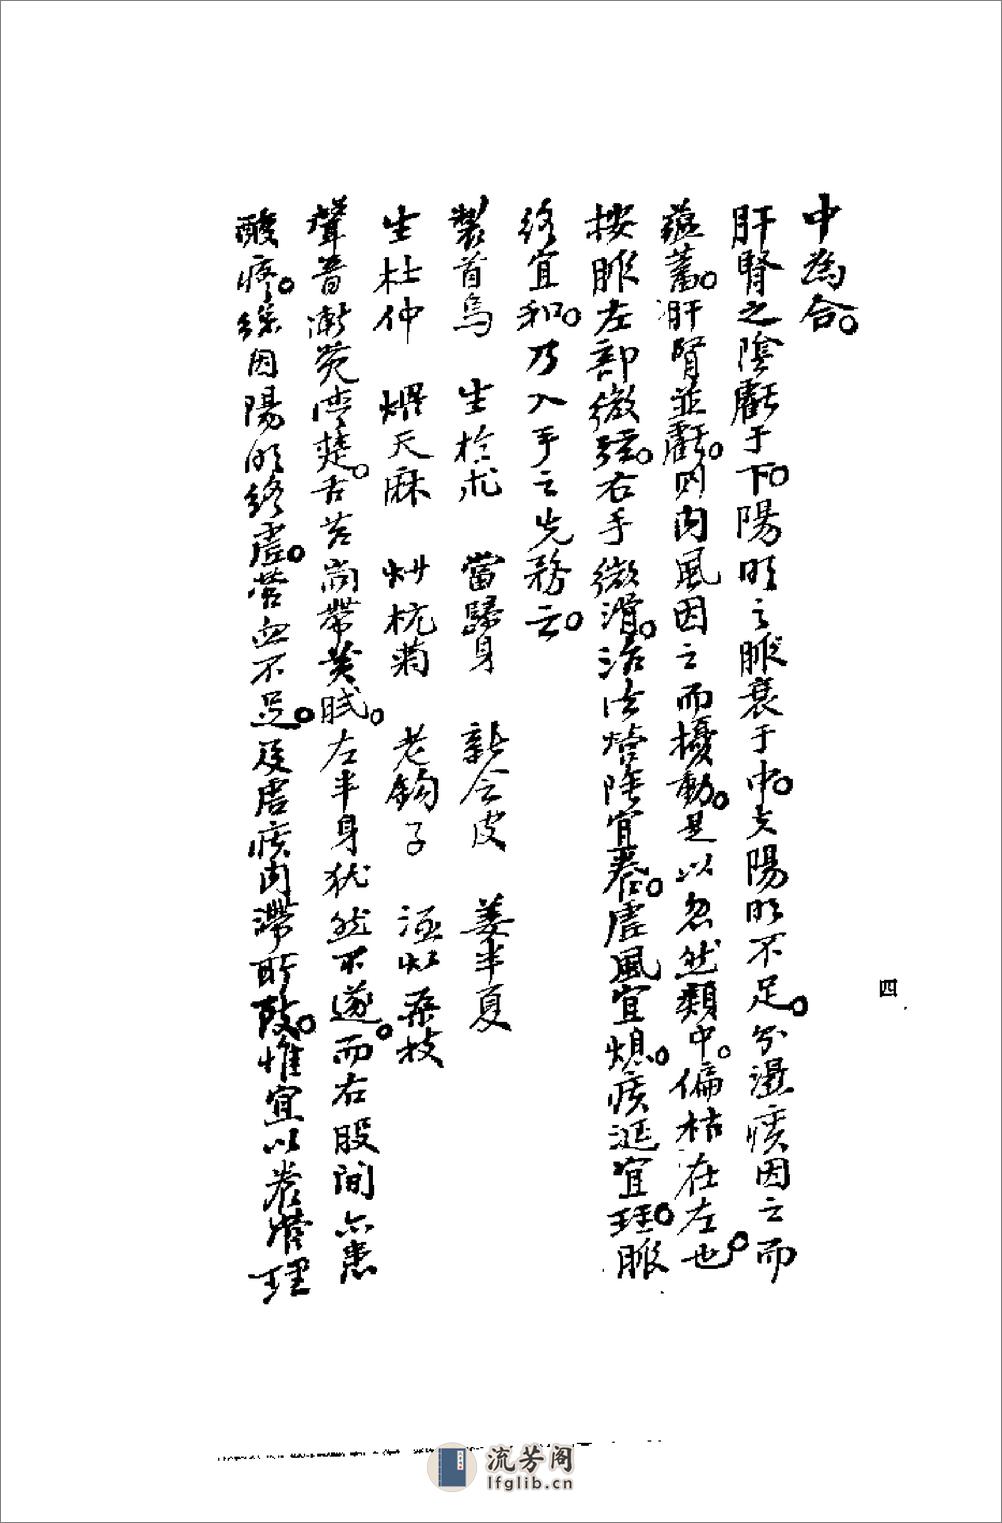 中為合。
肝腎之陰虧于下。陽明之脈衰于中。夫陽明不足。分濕痰因之而
蘊蓄。肝腎並虧。則內風因之而擾動。是以忽然類中。偏枯在左也。
按脈左部微弦。右手微滑。治法營陰宜養。虛風宜熄。痰涎宜理。脈
絡宜和。乃入手之先務云。
製首烏 生於朮 當歸身 新會皮 姜半夏
生杜仲 煨天麻 炒杭菊 老鈎子 酒炒桑枝
聲音漸覺清楚。舌苔尚帶黃膩。左半身猶然不遂。而右股間亦患
酸疼。綠因陽明絡虛。營血不足。及虛痰內滯所致。惟宜以養營理
四
流芳阁
lfglib.cn